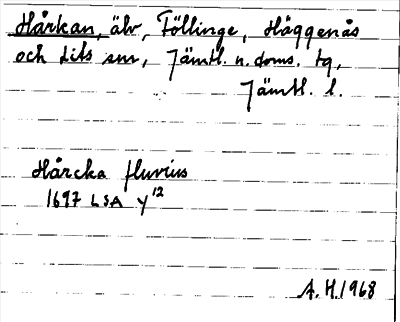 Hårkan, älv, Föllinge, Häggenås
och Lits snr, Jämtl. n. doms. tg,
Jämtl. l.
Hårcka fluvius
1697 LSA Y¹²
A.H. 1968